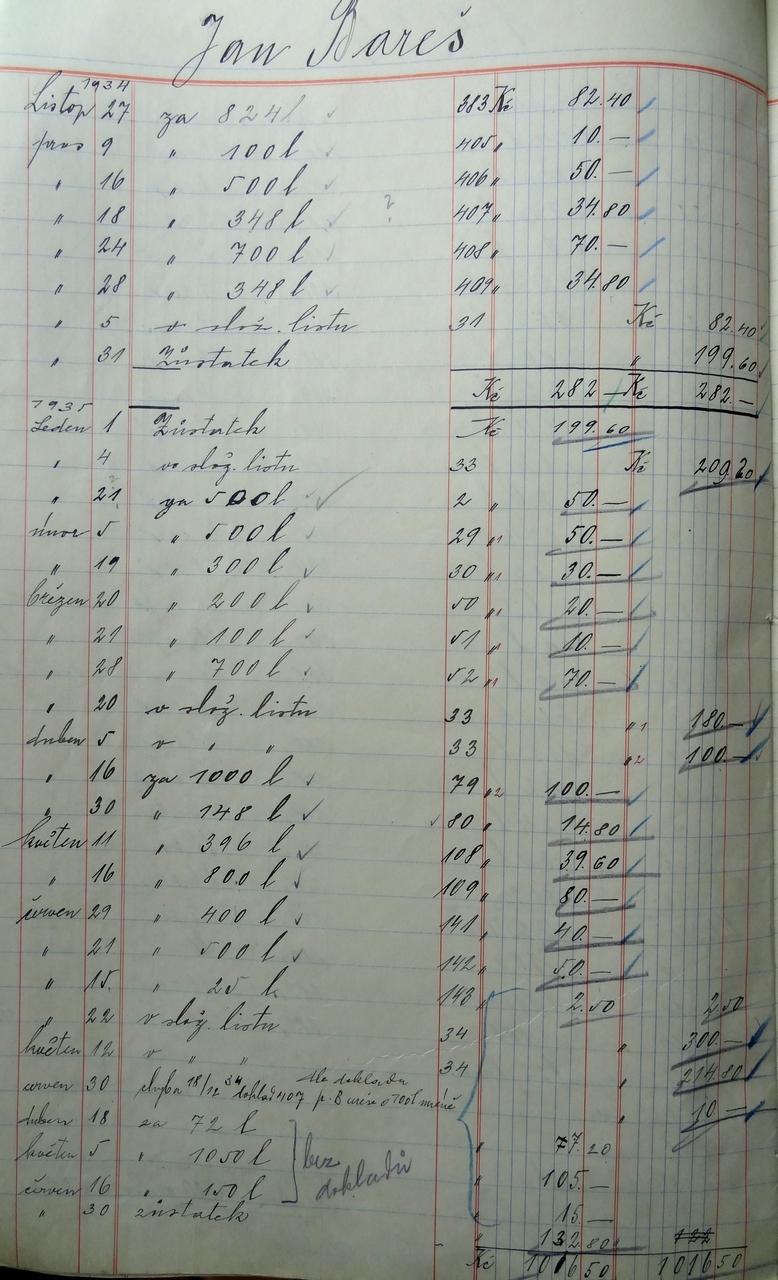 Jan Bareš
1934
Listop 27 za 824 l 383 Kč 82.40
pros 9 " 100 l 405 " 10.—
" 16 " 500 l 406 " 50.—
" 18 " 348 l ? 407 " 34.80
" 24 " 700 l 408 " 70.—
" 28 " 348 l 409 " 34.80
" 5 v slož. listu 31 Kč 82.40
" 31 Zůstatek " 199.60
Kč 282 — Kč 282.—
1935
Leden 1 Zůstatek Kč 199.60
" 4 vo slož. listu 33 Kč 209.20
" 21 za 500 l 2 " 50.—
únor 5 " 500 l 29 " 50.—
" 19 " 300 l 30 " 30.—
březen 20 " 200 l 50 " 20.—
" 21 " 100 l 51 " 10.—
" 28 " 700 l 52 " 70.—
" 20 v slož. listu 33 " 180.—
duben 5 v " " 33 " 100.—
" 16 za 1000 l 79 " 100.—
" 30 " 148 l 80 " 14.80
květen 11 " 396 l 108 " 39.60
" 16 " 800 l 109 " 80.—
červen 29 " 400 l 141 " 40.—
" 21 " 500 l 142 " 50.—
" 15. " 25 l 143 " 2.50 2.50
" 22 v slož. listu 34 " 300.—
květen 12 v " " 34 " 214.80
červen 30 chyba 18/12 34 doklad 407 dle dokladu p. B o 100 l méně " 10.—
duben 18 za 72 l " 77.20
květen 5 " 1050 l " 105.—
červen 16 " 150 l " 15.—
bez dokladů
" 30 zůstatek " 132.80 122
Kč 1016 50 1016 50